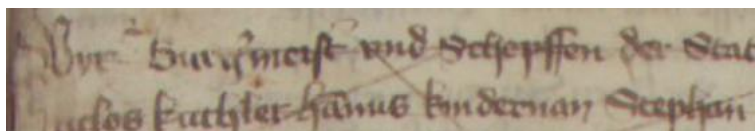 Wyr Burgmeist vnd Schepffen der Stat
aclos kuchler hannus kinderman Stephan